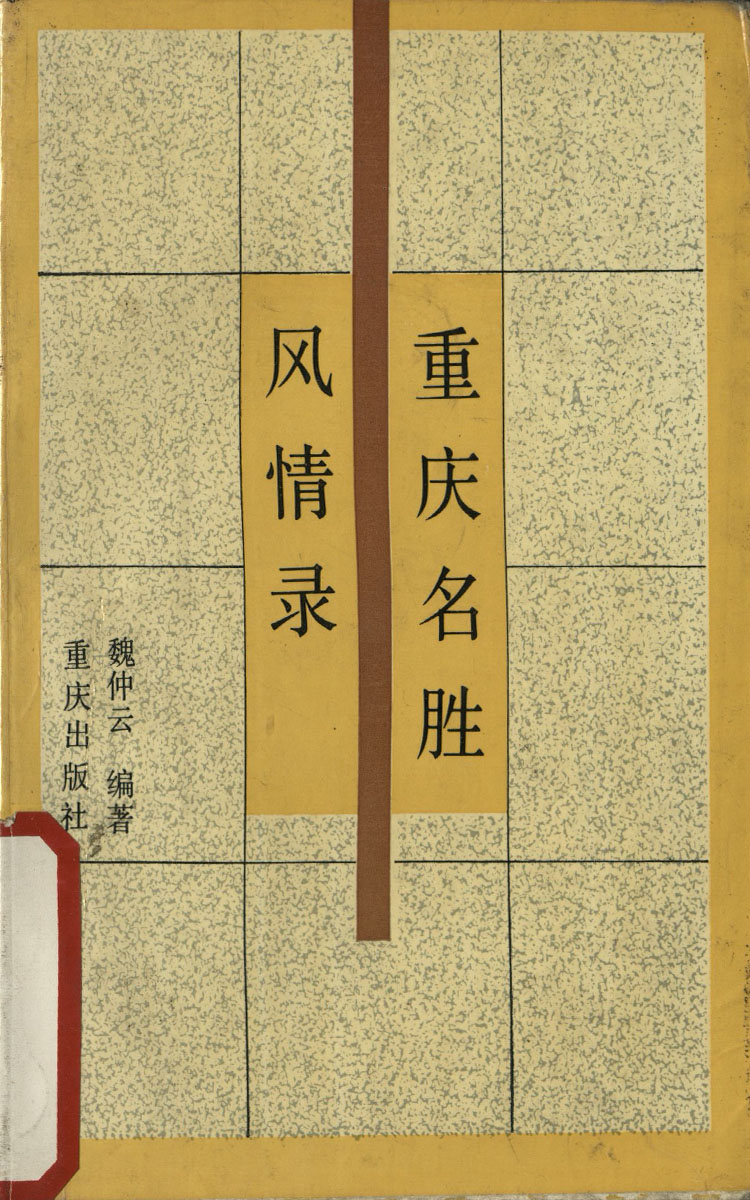 重庆名胜
风情录
魏仲云 编著
重庆出版社